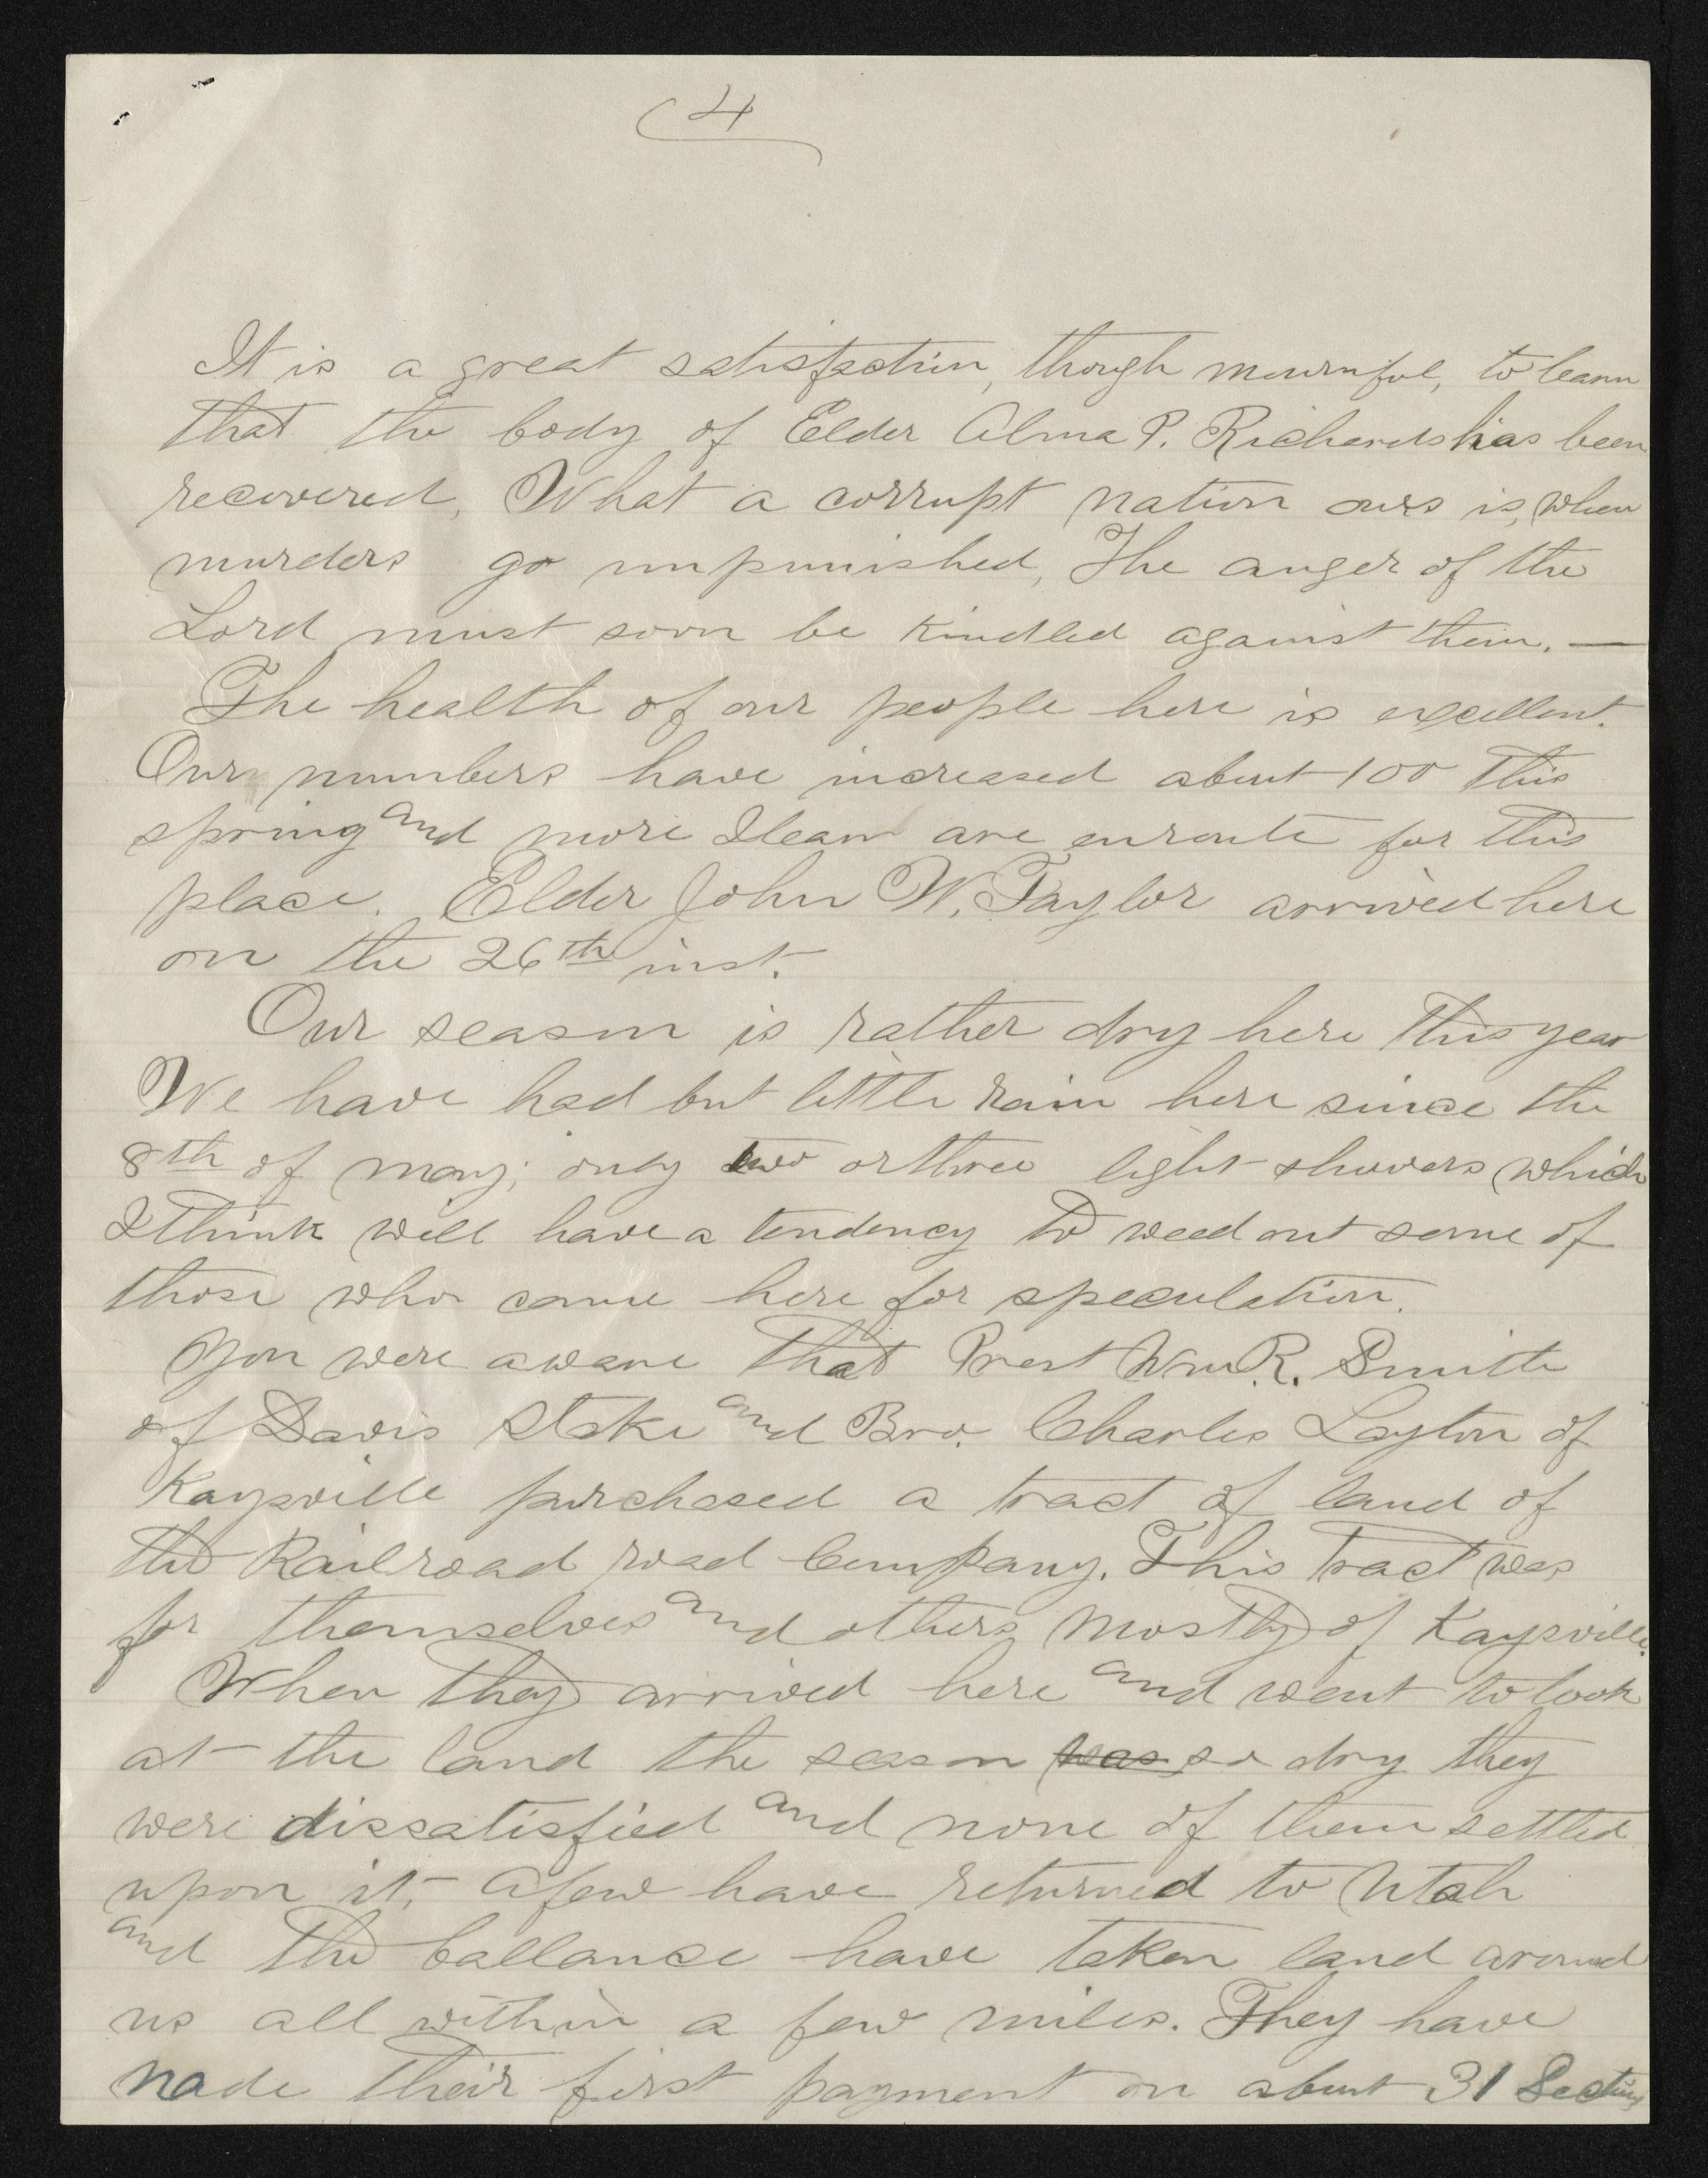 4
It is a great satisfaction, though mournful, to learn
that the body of Elder Alma P. Richards has been
recovered, What a corrupt nation ours is, when
murders go unpunished, The anger of the
Lord must soon be kindled against them. —
The health of our people here is excellent.
Our numbers have increased about 100 this
spring and more I learn are enroute for this
place. Elder John W. Taylor arrived here
on the 26th inst.
Our season is rather dry here this year
We have had but little rain here since the
8th of may; only two or three light showers which
I think will have a tendency to weed out some of
those who came here for speculation.
You were aware that Prest Wm. R. Smith
of Davis Stake and Bro. Charles Layton of
Kaysville purchased a tract of land of
the Railroad road Company. This tract was
for themselves and others mostly of Kaysville.
When they arrived here and went to look
at the land the season was so dry they
were dissatisfied and none of them settled
upon it, A few have returned to Utah
and the ballance have taken land around
us all within a few miles. They have
made their first payment on about 31 Sections